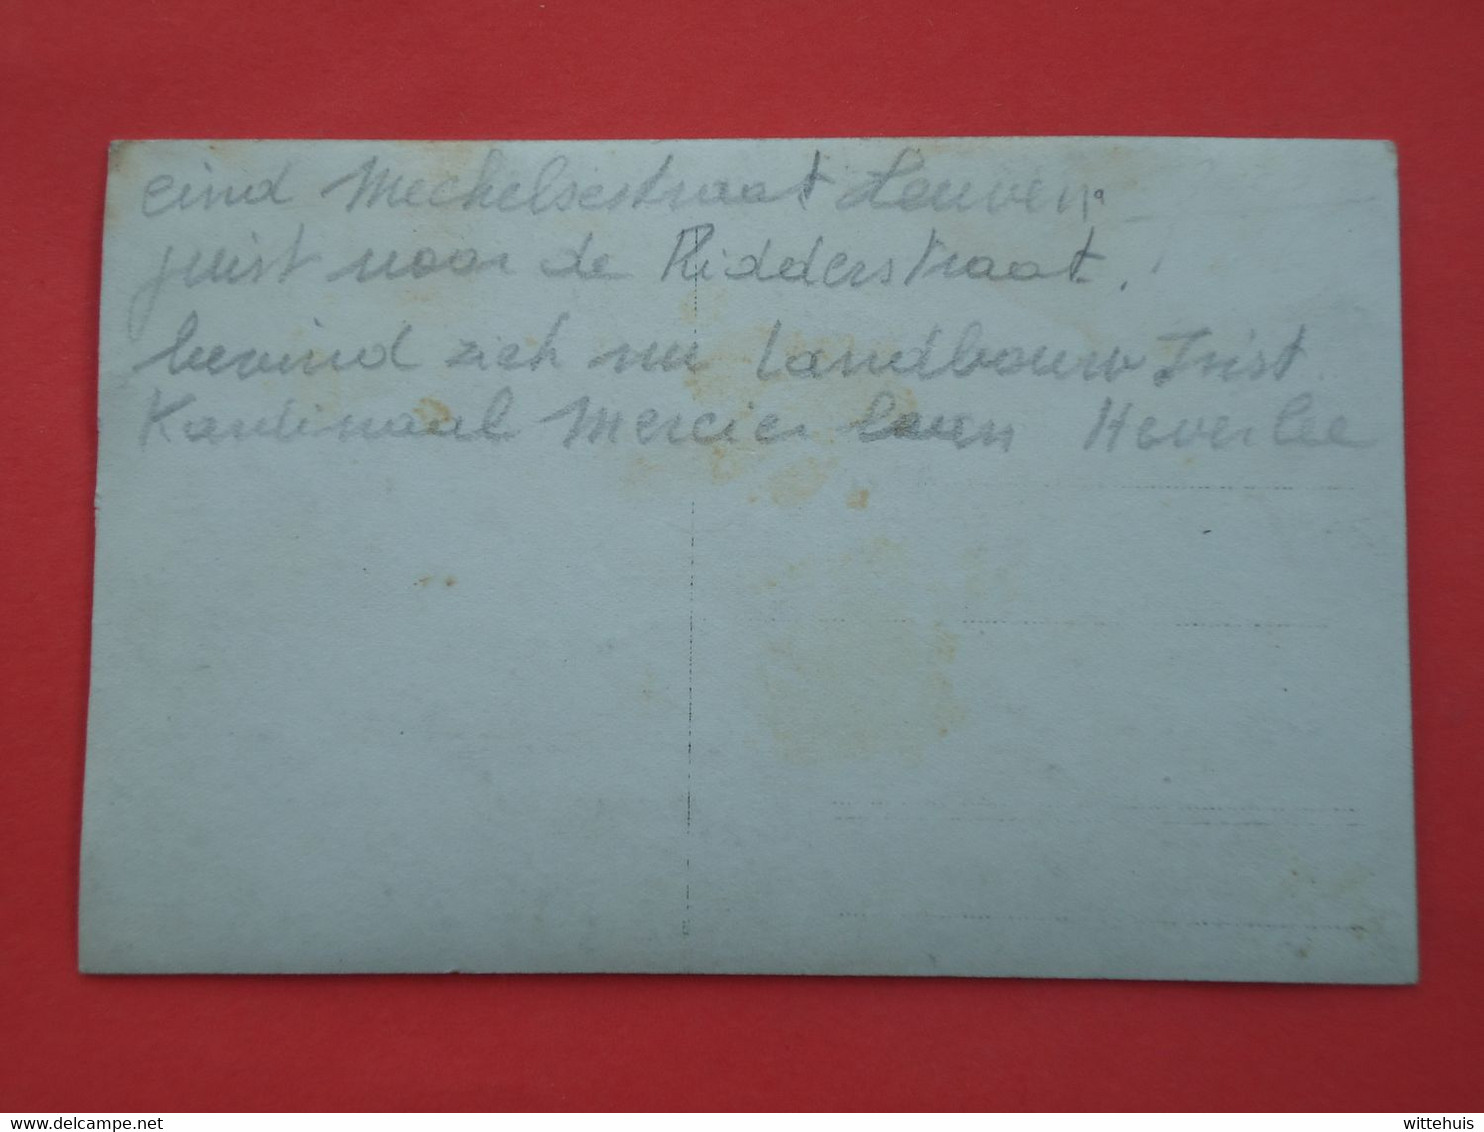 eind Mechelsestraat Leuven
juist voor de Ridderstraat.
bevind zich nu Landbouw Inst.
Kardinaal Mercier laan Heverlee
delcampe.net
wittehuis